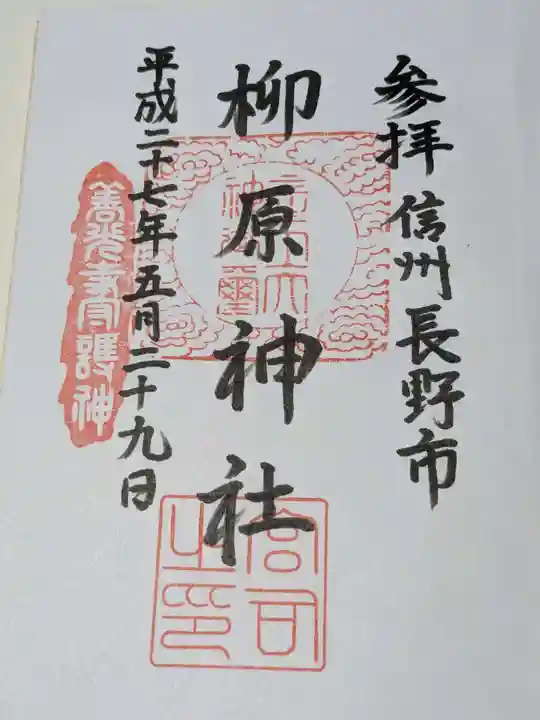 参拝 信州長野市
柳原神社
平成二十七年五月二十九日
善光寺守護神
宮司之印